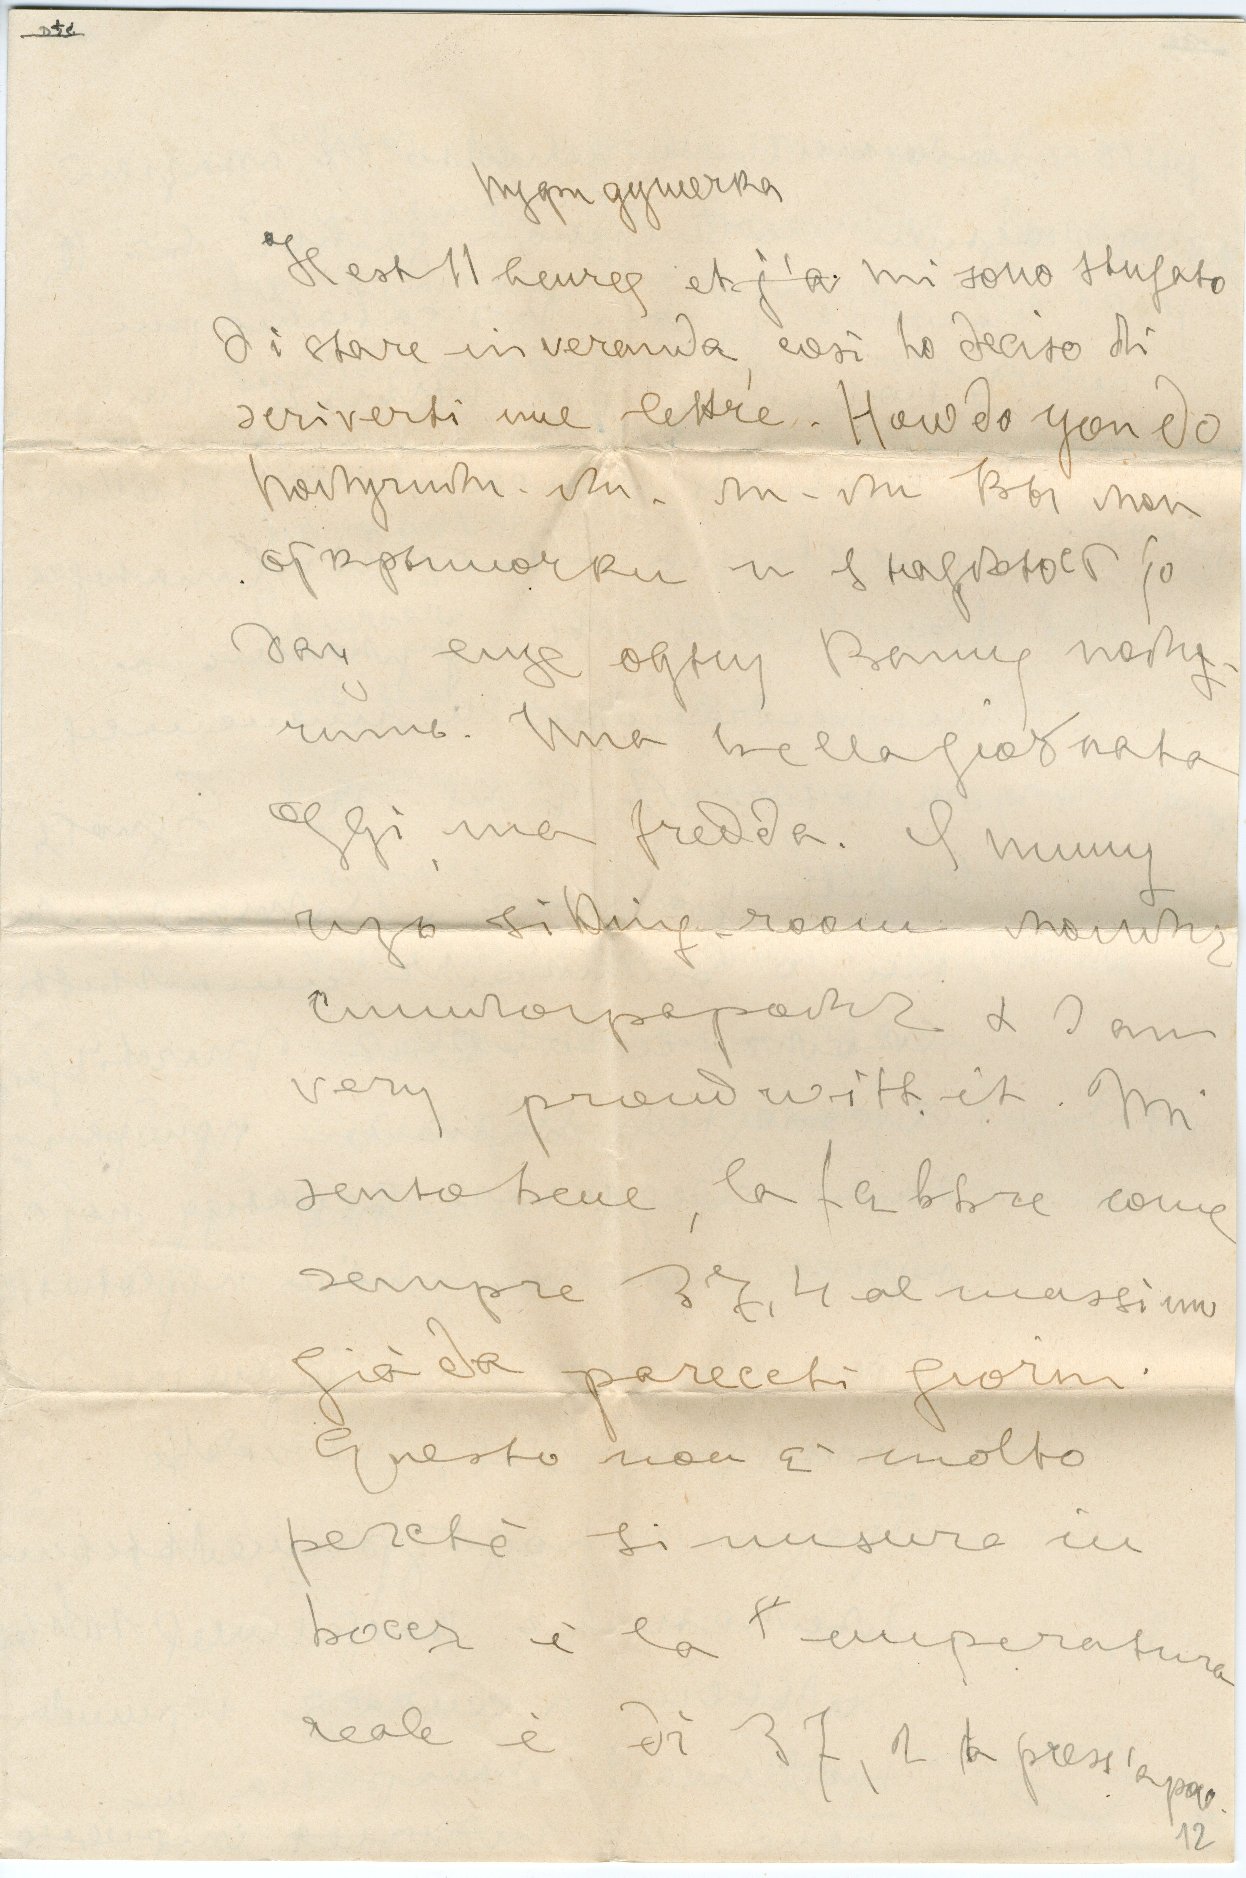 душечка
Il est 11 heures et j'a mi sono stufato
di stare in veranda, così ho deciso di
scriverti une lettre. How do you do
Получили-ли Вы мои
открыточки и я надѣюсь to
day еще одну Вашу полу-
чить. Una bella giornata
oggi, ma fredda. Я пишу
изъ sitting-room
& I am
very proud with it. Mi
sento bene, la febbre come
sempre 37,4 al massimo
già da parecchi giorni.
Questo non è molto
perchè si misura in
bocca e la temperatura
reale è di 37,2 a press'a poco.
12